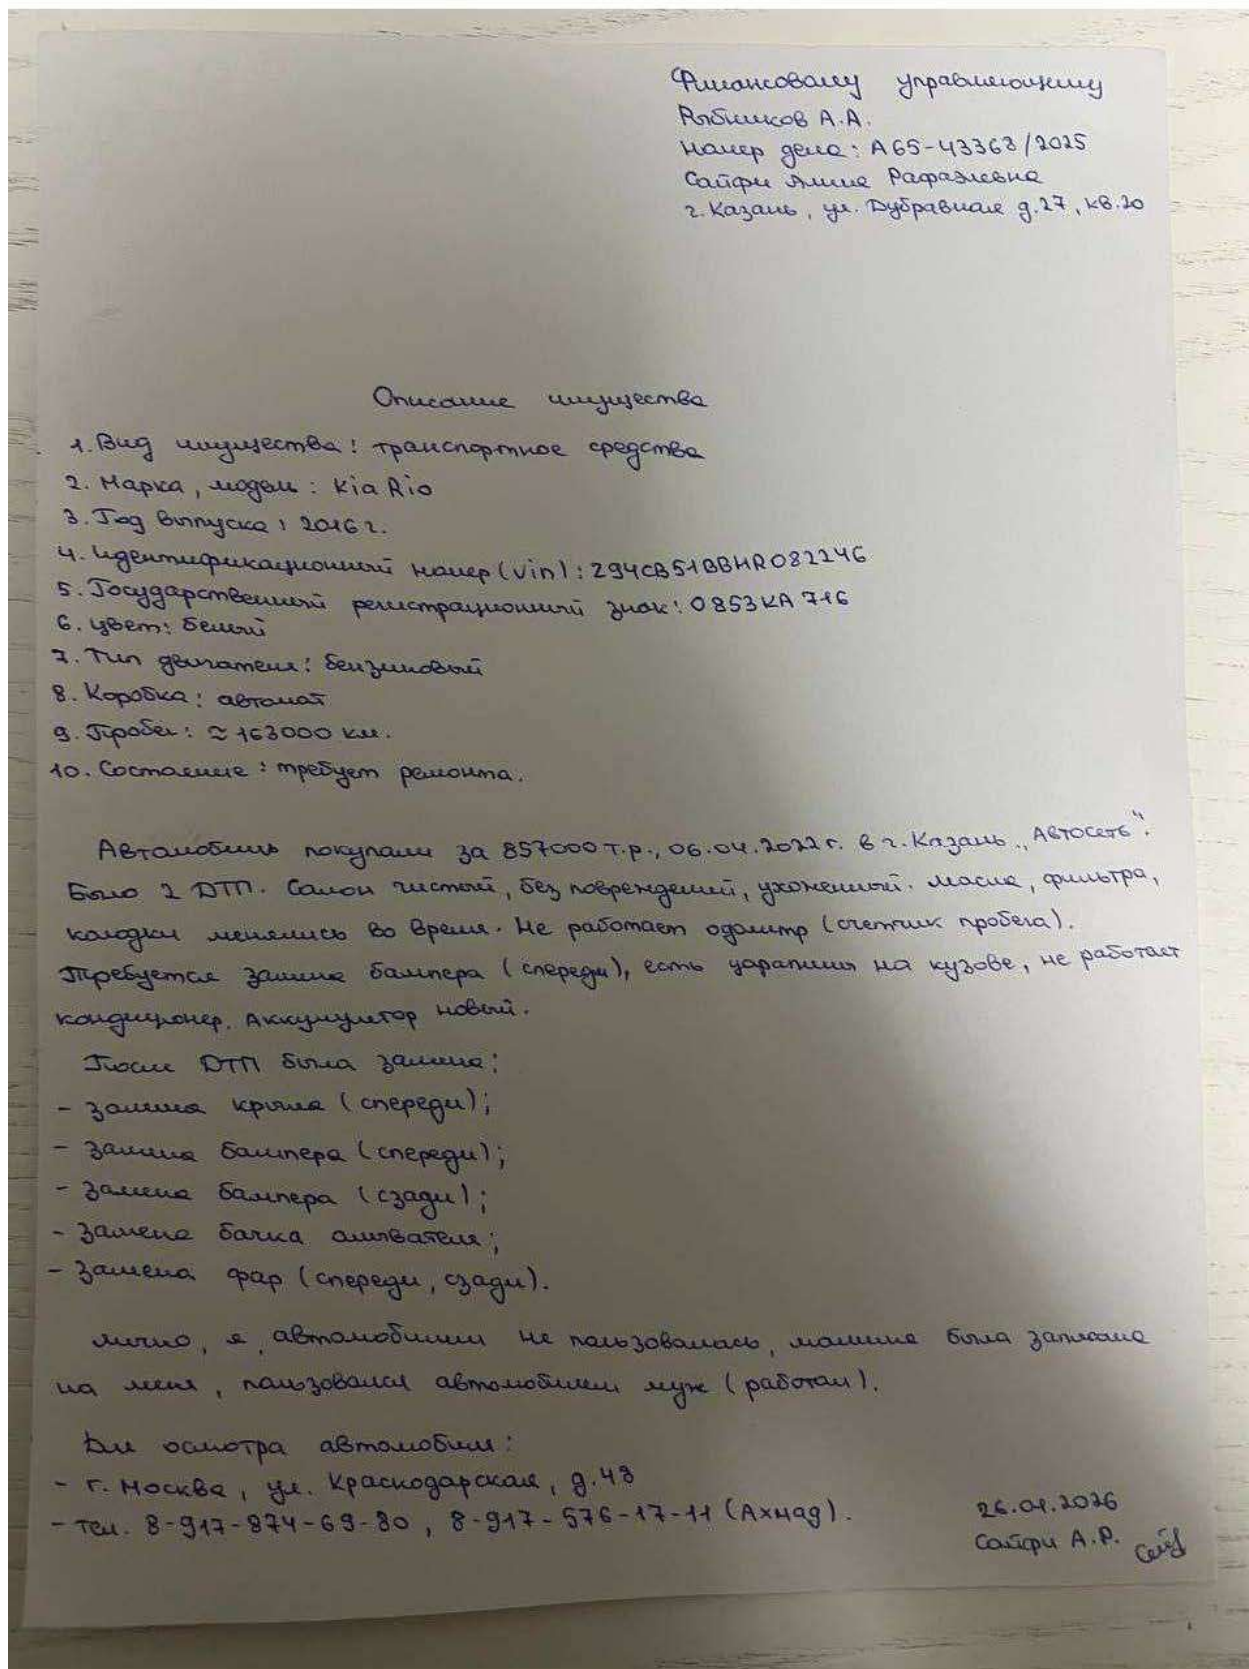 Финансовому управляющему
Рыбников А.А.
Номер дела: А65-43363/2025
Сайфи Алина Рафаэлевна
г. Казань, ул. Дубравная д.27, кв.20
Описание имущества
1. Вид имущества: транспортное средства
2. Марка, модель: Kia Rio
3. Год выпуска: 2016 г.
4. Идентификационный номер (vin): Z94CB51BBHR082246
5. Государственный регистрационный знак: О853КА 716
6. Цвет: белый
7. Тип двигателя: бензиновый
8. Коробка: автомат
9. Пробег: ≈ 163000 км.
10. Состояние: требует ремонта.
Автомобиль покупали за 857000 т.р., 06.04.2022 г. в г. Казань „Автосеть".
Было 2 ДТП. Салон чистый, без повреждений, ухоженный. Масла, фильтра,
колодки менялись во время. Не работает одометр (счетчик пробега).
Требуется замена бампера (спереди), есть царапины на кузове, не работает
кондиционер. Аккумулятор новый.
После ДТП была замена:
- замена крыла (спереди);
- замена бампера (спереди);
- замена бампера (сзади);
- замена бачка омывателя;
- замена фар (спереди, сзади).
Лично, я, автомобилем не пользовалась, машина была записана
на меня, пользовался автомобилем муж (работал).
Для осмотра автомобиля:
- г. Москва, ул. Краснодарская, д.48
- тел. 8-917-874-69-80, 8-917-576-17-11 (Ахмад).
26.01.2026
Сайфи А.Р.